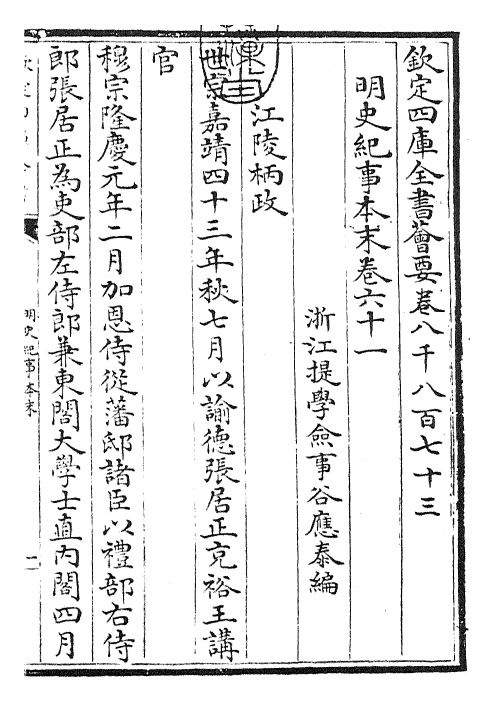 欽定四庫全書薈要卷八千八百七十三
明史紀事本末卷六十一
浙江提學僉事谷應泰編
江陵柄政
世宗嘉靖四十三年秋七月以諭德張居正充裕王講
官
穆宗隆慶元年二月加恩侍從藩邸諸臣以禮部右侍
郎張居正為吏部左侍郎兼東閣大學士直內閣四月
明史紀事本末
一